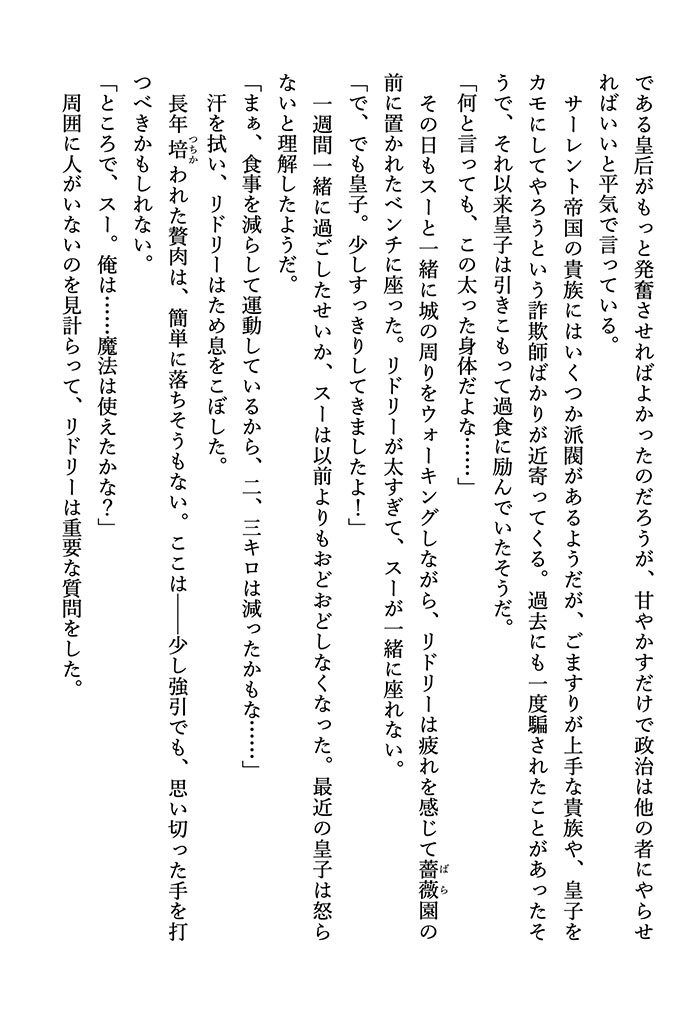 である皇后がもっと発奮させればよかったのだろうが、甘やかすだけで政治は他の者にやらせ
ればいいと平気で言っている。
サーレント帝国の貴族にはいくつか派閥があるようだが、ごますりが上手な貴族や、皇子を
カモにしてやろうという詐欺師ばかりが近寄ってくる。過去にも一度騙されたことがあったそ
うで、それ以来皇子は引きこもって過食に励んでいたそうだ。
「何と言っても、この太った身体だよな……」
その日もスーと一緒に城の周りをウォーキングしながら、リドリーは疲れを感じて薔薇園の
前に置かれたベンチに座った。リドリーが太すぎて、スーが一緒に座れない。
「で、でも皇子。少しすっきりしてきましたよ！」
一週間一緒に過ごしたせいか、スーは以前よりもおどおどしなくなった。最近の皇子は怒ら
ないと理解したようだ。
「まぁ、食事を減らして運動しているから、二、三キロは減ったかもな……」
汗を拭い、リドリーはため息をこぼした。
長年培われた贅肉は、簡単に落ちそうもない。ここは――少し強引でも、思い切った手を打
つべきかもしれない。
「ところで、スー。俺は……魔法は使えたかな？」
周囲に人がいないのを見計らって、リドリーは重要な質問をした。